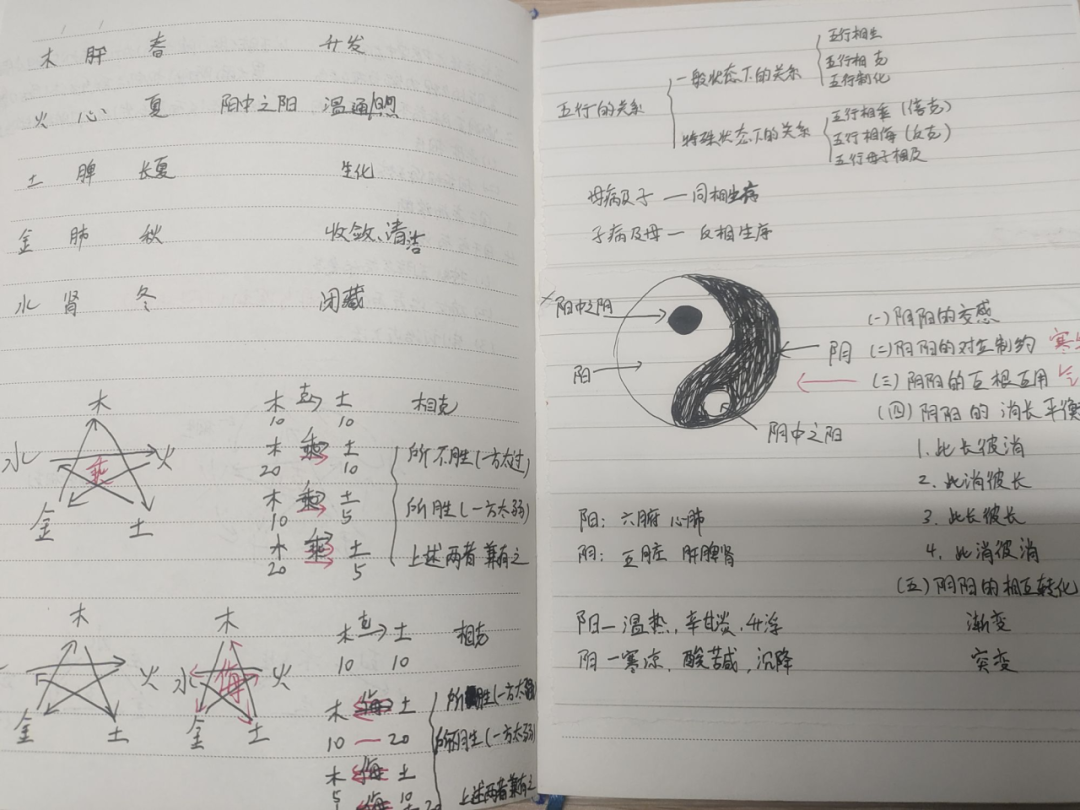 木 肝 春 升发
火 心 夏 阳中之阳 温通照
土 脾 长夏 生化
金 肺 秋 收敛、清洁
水 肾 冬 闭藏
木
水 火
乘
金 土
木 克 土 相克
10 10
木 乘 土 所不胜(一方太过)
20 10
木 乘 土 所胜(一方太弱)
10 5
木 乘 土 上述两者兼有之
20 5
木
火
金 土
木
水 侮 火
金 土
木 克 土 相克
10 10
木 侮 土 所胜(一方太
10 20
木 侮 土 上述两者兼有之
5 10
侮 20
五行的关系
一般状态下的关系
五行相生
五行相克
五行制化
特殊状态下的关系
五行相乘(倍克)
五行相侮(反克)
五行母子相及
母病及子 — 同相生
子病及母 — 反相生序
阳中之阴
阳
阴
阴中之阳
(一)阴阳的交感
(二)阴阳的对立制约 寒
(三)阴阳的互根互用
(四)阴阳的消长平衡
1. 此长彼消
2. 此消彼长
3. 此长彼长
4. 此消彼消
(五)阴阳的相互转化
渐变
突变
阳: 六腑 心肺
阴: 五脏 肝脾肾
阳 — 温热, 辛甘淡, 升浮
阴 — 寒凉, 酸苦咸, 沉降